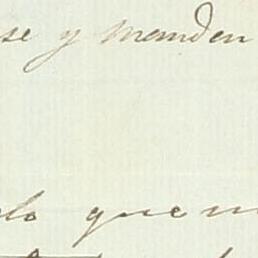 se y manden
lo que m